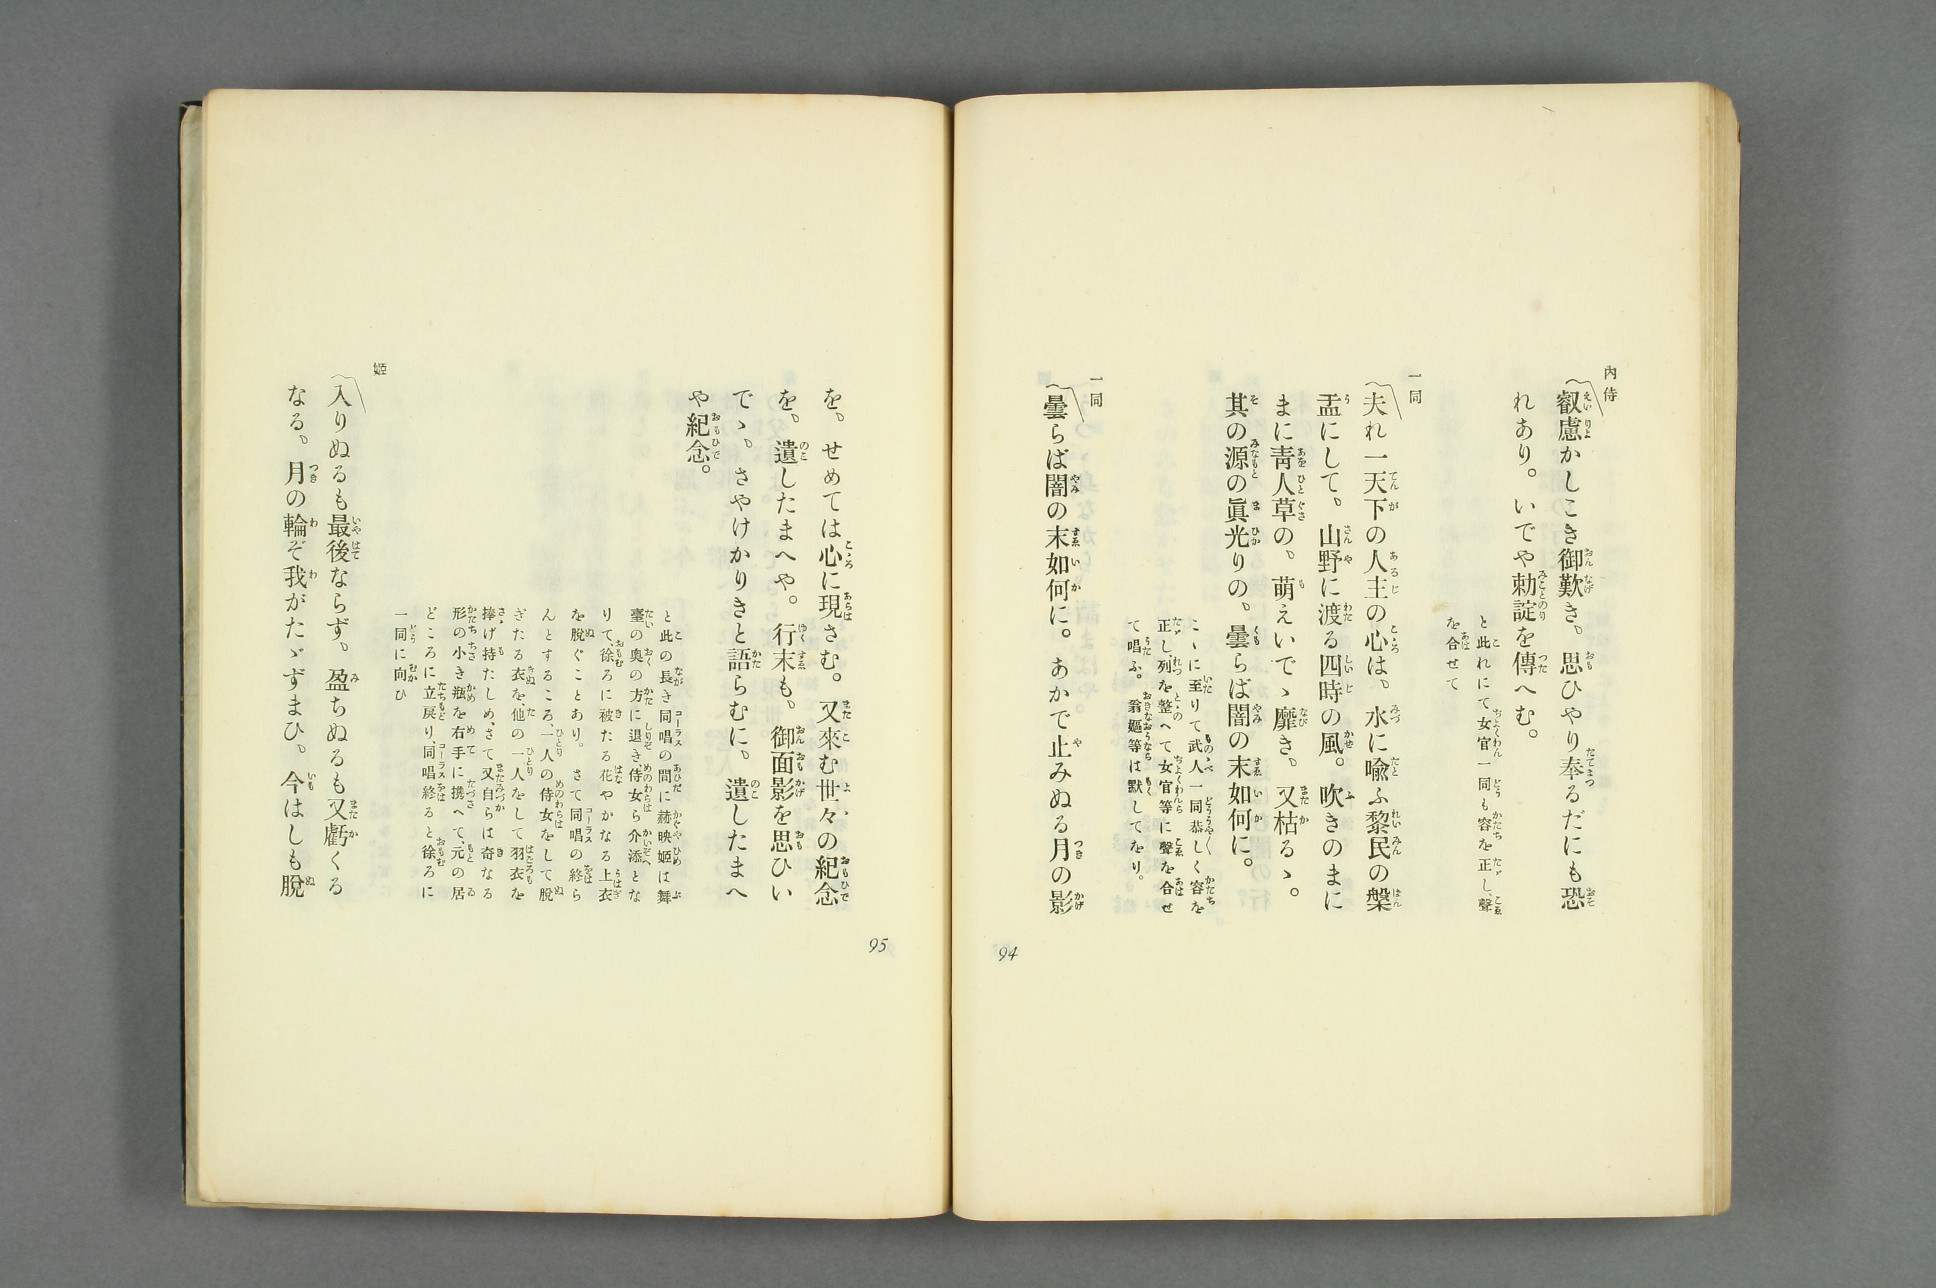 內侍
〽叡慮かしこき御歎き、思ひやり奉るだにも恐
れあり。いでや勅諚を傳へむ。
と此れにて女官一同も容を正し、聲
を合せて
一同
〽夫れ一天下の人主の心は、水に喩ふ黎民の槃
盂にして。山野に渡る四時の風。吹きのまに
まに靑人草の、萌えいでゝ靡き、又枯るゝ。
其の源の眞光りの、曇らば闇の末如何に。
こゝに至りて武人一同恭しく容を
正し、列を整へて女官等に聲を合せ
て唱ふ。翁嫗等は默してをり。
一同
〽曇らば闇の末如何に。あかで止みぬる月の影
94
を、せめては心に現さむ。又來む世々の紀念
を、遺したまへや。行末も、御面影を思ひい
でゝ、さやけかりきと語らむに、遺したまへ
や紀念。
と此の長き同唱の間に赫映姬は舞
臺の奧の方に退き、侍女ら介添とな
りて、徐ろに被たる花やかなる上衣
を脫ぐことあり。さて同唱の終ら
んとするころ、一人の侍女をして脫
ぎたる衣を、他の一人をして羽衣を
捧げ持たしめ、さて又自らは奇なる
形の小き瓶を右手に携へて、元の居
どころに立戾り、同唱終ると徐ろに
一同に向ひ
姬
〽入りぬるも最後ならず。盈ちぬるも又虧くる
なる、月の輪ぞ我がたゝずまひ、今はしも脫
95